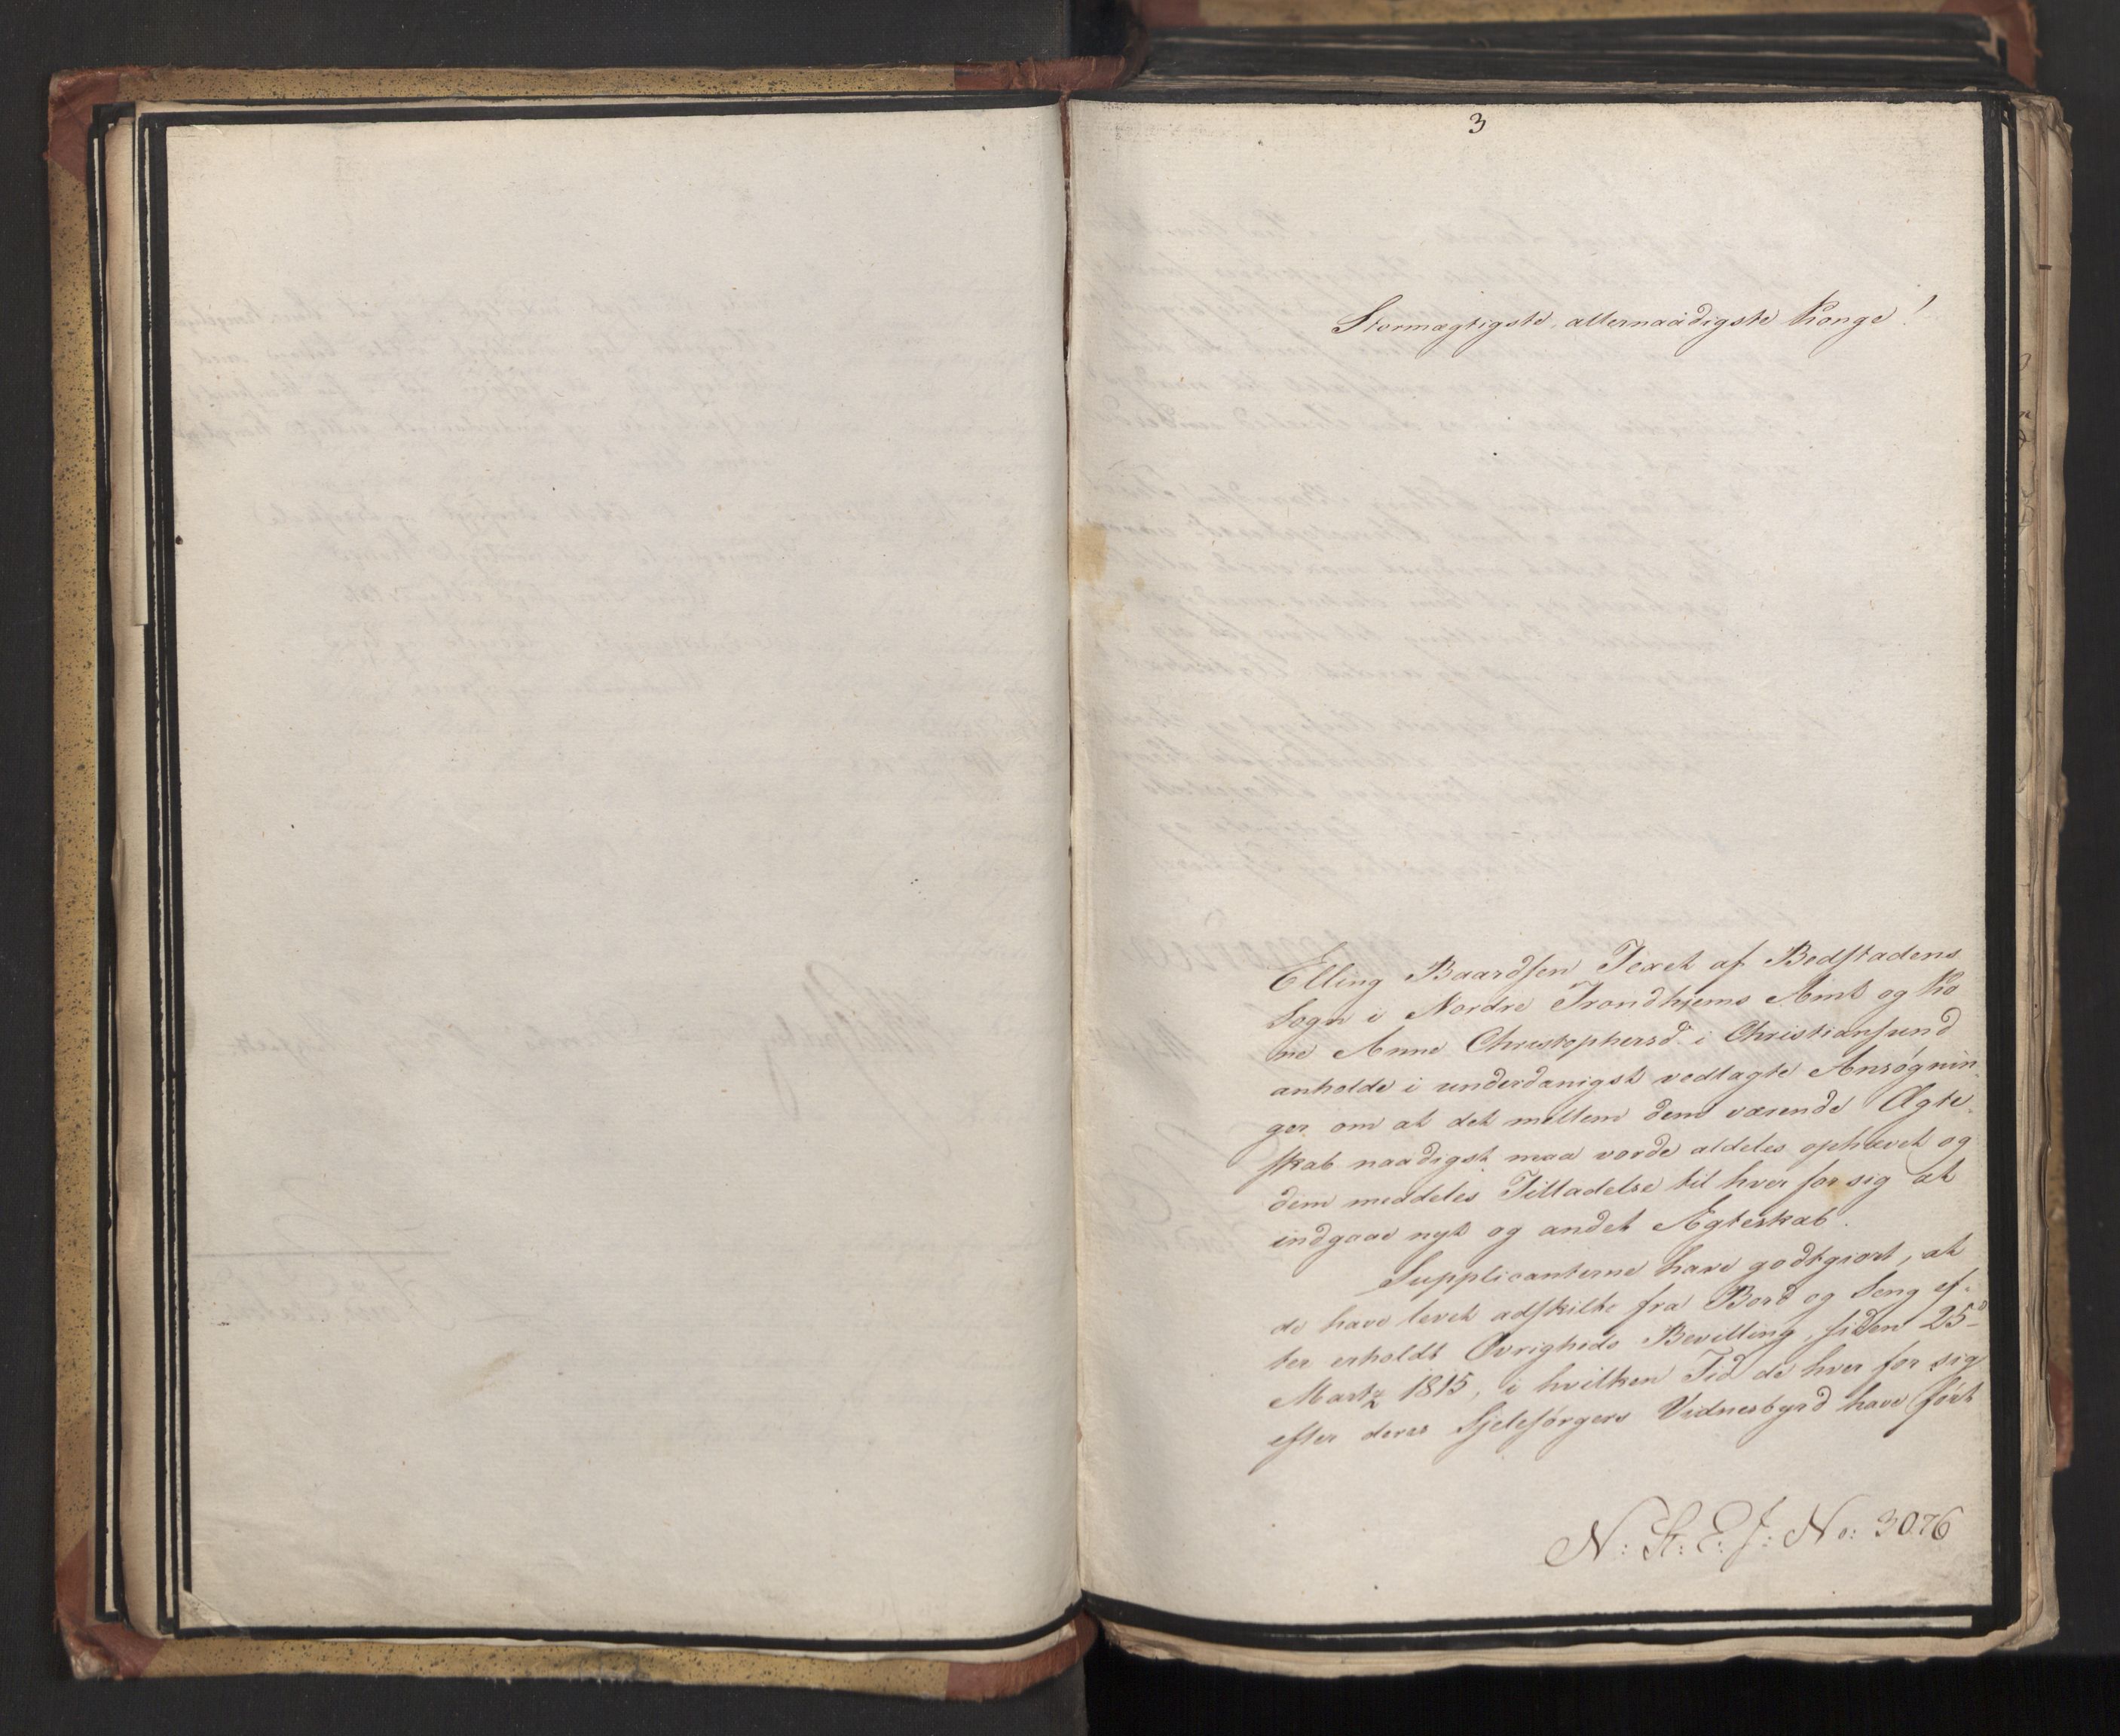 3
Stormægtigste, allernaadigste Konge!
Elling Baardsen Texet af Bedstadens
Sogn i Nordre Trondhjems Amt og Ko
ne Anne Christophersd. i Christiansund
anholde i underdanigst vedlagte Ansøgnin
ger om at det mellem dem værende Ægte
skab naadigst maa vorde aldeles ophævet og
dem meddeles Tilladelse til hver for sig at
indgaae nyt og andet Ægteskab.
Supplicanterne have godtgiort, at
de have levet adskilte fra Bord og Seng ef-
ter erholdt Øvrigheds Bevilling, siden 25d
Martz 1815, i hvilken Tid de hver for sig
efter deres Sjelesørgers Vidnesbyrd have ført
N: St: E: J: No: 3076